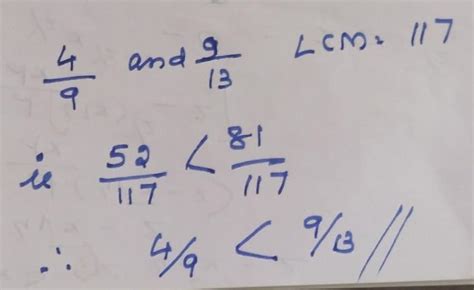 4/9 and 9/13 LCM = 117
ie 52/117 < 81/117
∴ 4/9 < 9/13 //